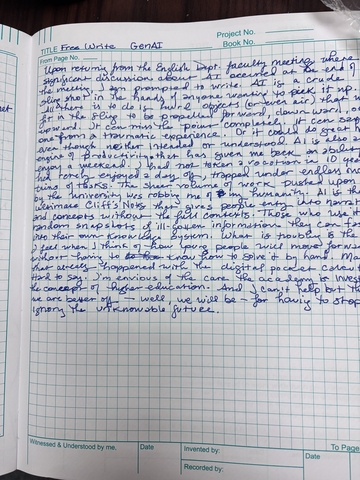 Project No.
TITLE Free Write GenAI
Book No.
From Page No.
Upon returning from the English Dept. faculty meeting where
significant discussions about AI occurred at the end of
the meeting, I am prompted to write. AI is a crude
sling shot in the hands of anyone wanting to pick it up.
All there is to do is hurl objects (or even air) that
fit in the sling to be propelled forward, downward, or
upward. It can miss the point completely. It can
one from a traumatic experience. Or it could do great
even though neither intended or understood. AI is also
engine of productivity that has given me back an ability
enjoy a weekend. I had not taken a vacation in 10
had rarely enjoyed a day off, trapped under endless
of tasks. The sheer volume of work pushed upon
by the university was robbing me of my humanity. AI is th
ultimate Cliff's Notes that gives people entry into
and concepts without the full contexts. Those who use
random snapshots of ill-gotten information they can
into their own knowledge system. What is troubling is the
I feel when I think of how young people will move forwa
without having to know how to solve it by hand.
that already happened with the digital pocket
to say. I'm envious of the care the academy is
the concept of higher education. And I can't help but
we are better off — well, we will be — for having to stop
ignoring the unknowable future.
Witnessed & Understood by me,
Date
Invented by:
Date
Recorded by:
To Page